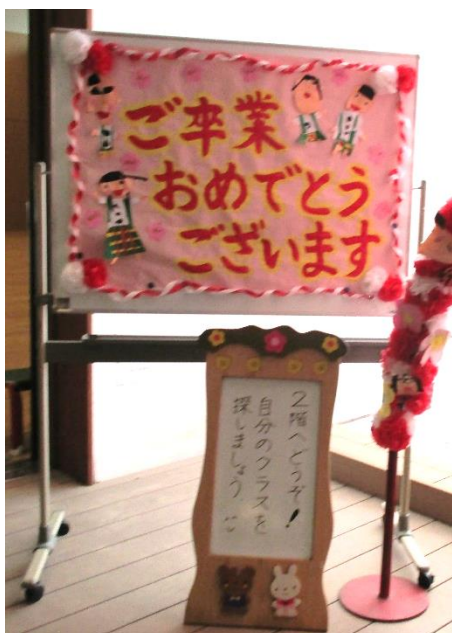 ご卒業
おめでとう
ございます
2階へどうぞ!
自分のクラスを
探しましょう.